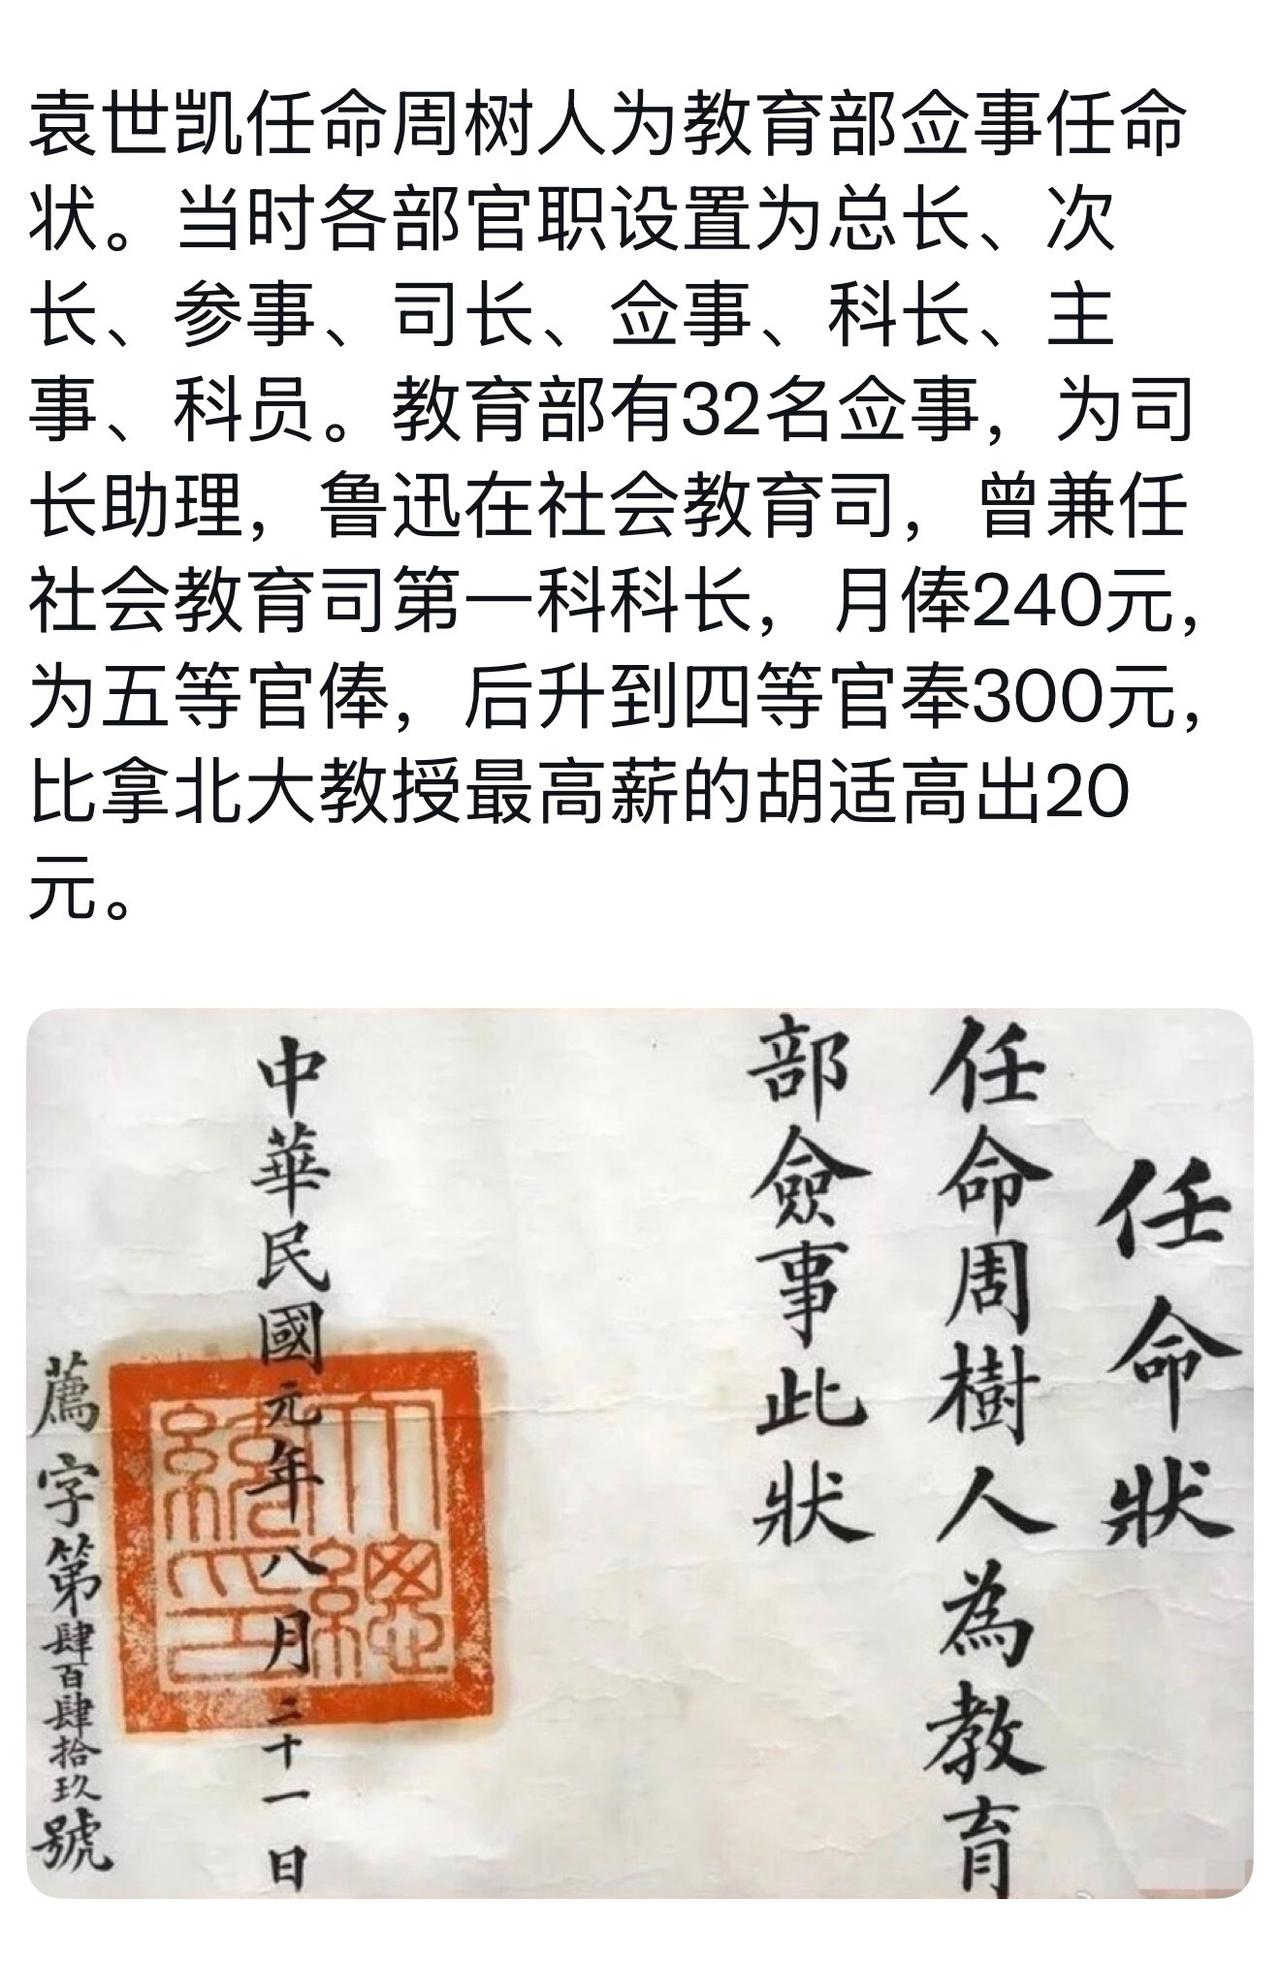 袁世凯任命周树人为教育部佥事任命
状。当时各部官职设置为总长、次
长、参事、司长、佥事、科长、主
事、科员。教育部有32名佥事，为司
长助理，鲁迅在社会教育司，曾兼任
社会教育司第一科科长，月俸240元，
为五等官俸，后升到四等官奉300元，
比拿北大教授最高薪的胡适高出20
元。
任命狀
任命周樹人為教育
部僉事此狀
中華民國元年八月二十一日
大總統印
薦字第肆百肆拾玖號